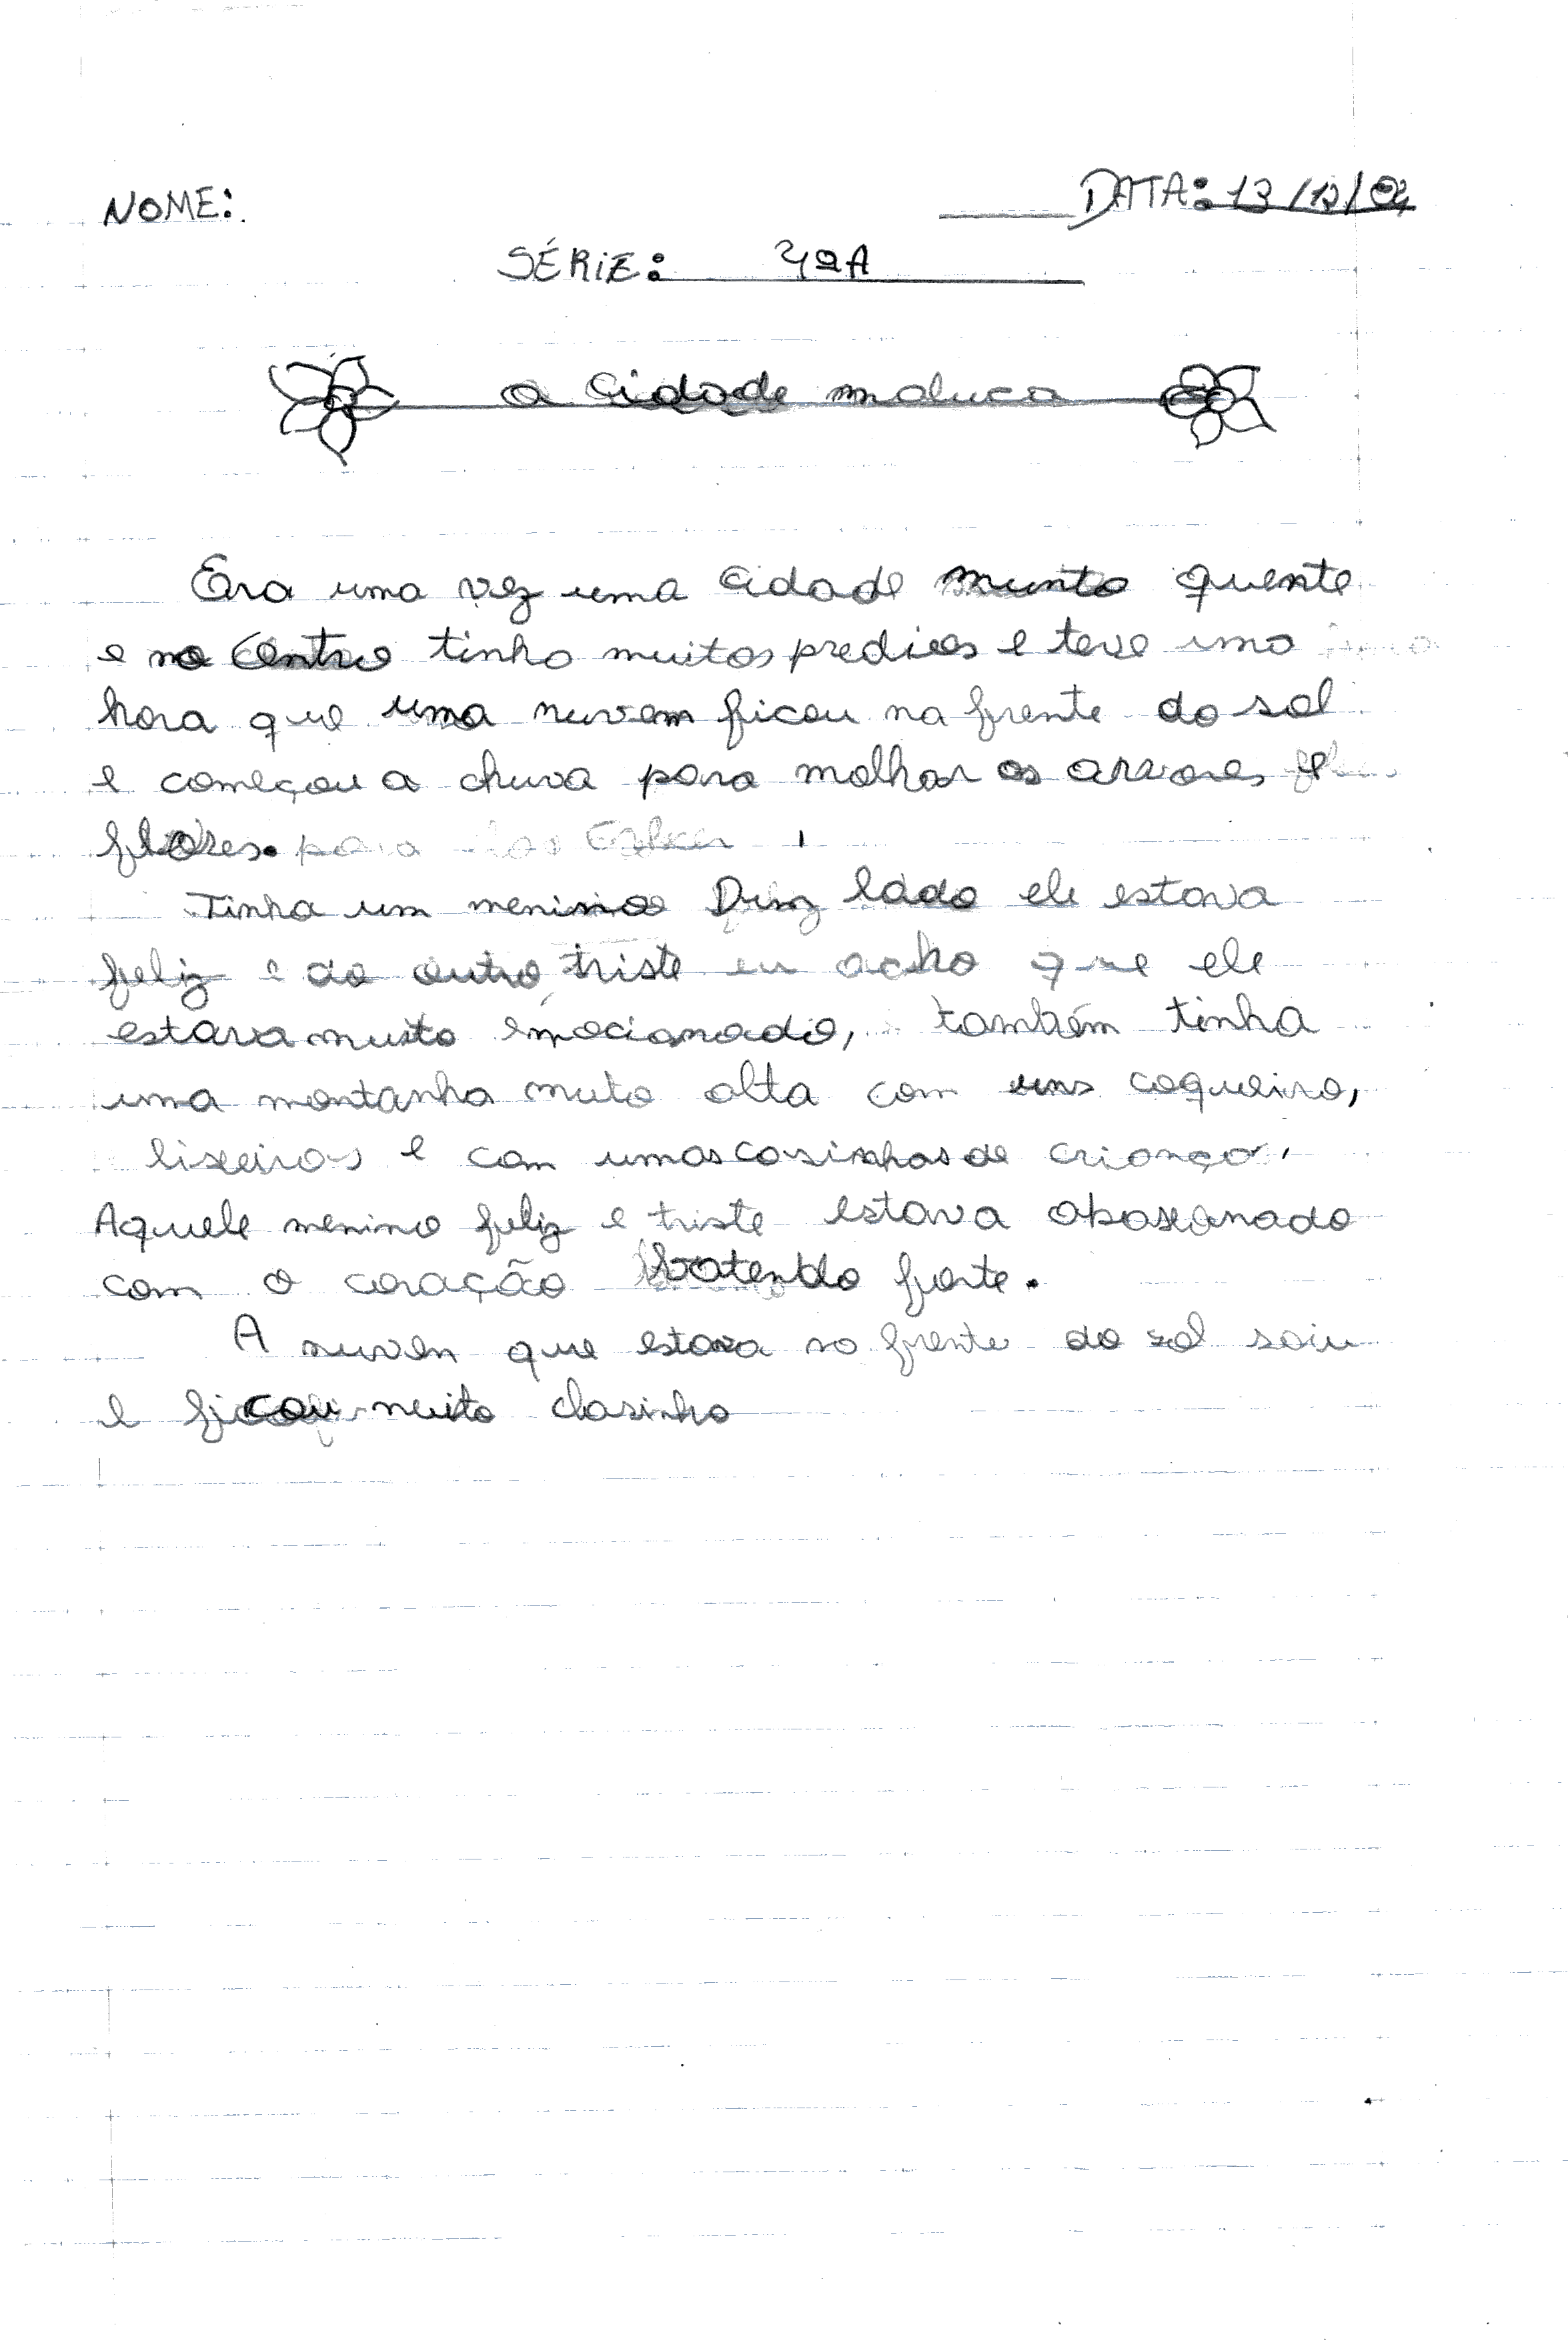 NOME: DATA: 13/12/04
SÉRIE: 4ªA
a cidade maluca
Era uma vez uma cidade muinto quente
e no centro tinha muitos predios e teve uma
hora que uma nuvem ficou na frente do sol
e começou a chuva para molhar as arvores e
flores.
Tinha um menino Dum lado ele estava
feliz e do outro triste eu acho que ele
estava muito emocionado, também tinha
uma montanha muto alta com uns coqueiro,
lixeiras e com umas casinhas de criança,
Aquele menino feliz e triste estava apaxonado
com o coração batendo forte.
A nuven que estava na frente do sol saiu
e ficou muito clarinho